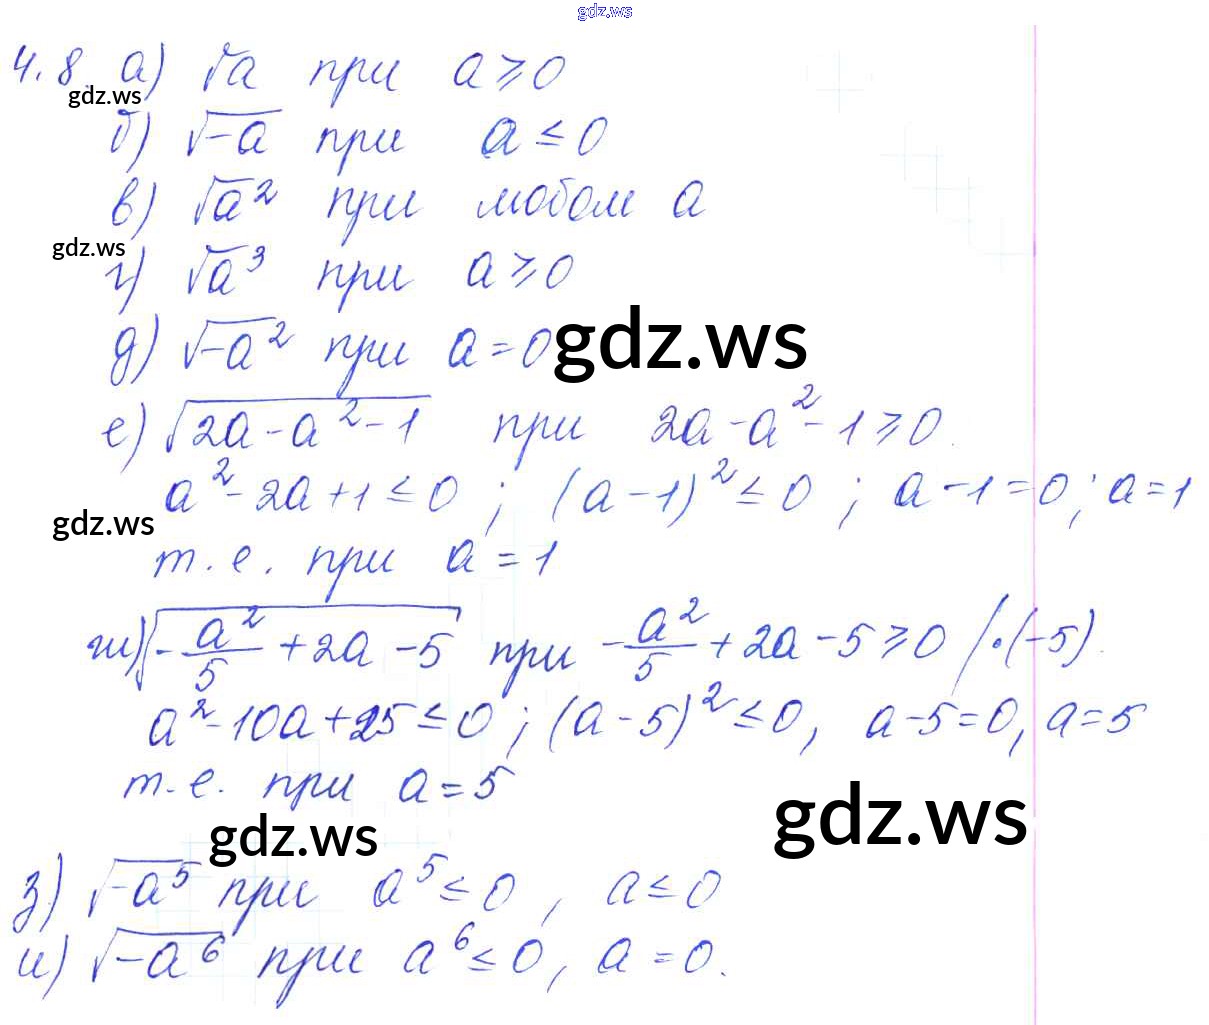 gdz.ws
4.8 а) √a при a ≥ 0
gdz.ws
б) √-a при a ≤ 0
в) √a² при любом a
gdz.ws
г) √a³ при a ≥ 0
д) √-a² при a = 0
gdz.ws
е) √2a - a² - 1 при 2a - a² - 1 ≥ 0.
a² - 2a + 1 ≤ 0 ; (a - 1)² ≤ 0 ; a - 1 = 0 ; a = 1
gdz.ws
т.е. при a = 1
ж) √-a²/5 + 2a - 5 при -a²/5 + 2a - 5 ≥ 0 /·(-5).
a² - 10a + 25 ≤ 0 ; (a - 5)² ≤ 0, a - 5 = 0, a = 5
т.е. при a = 5
gdz.ws
gdz.ws
з) √-a⁵ при a⁵ ≤ 0, a ≤ 0
и) √-a⁶ при a⁶ ≤ 0, a = 0.